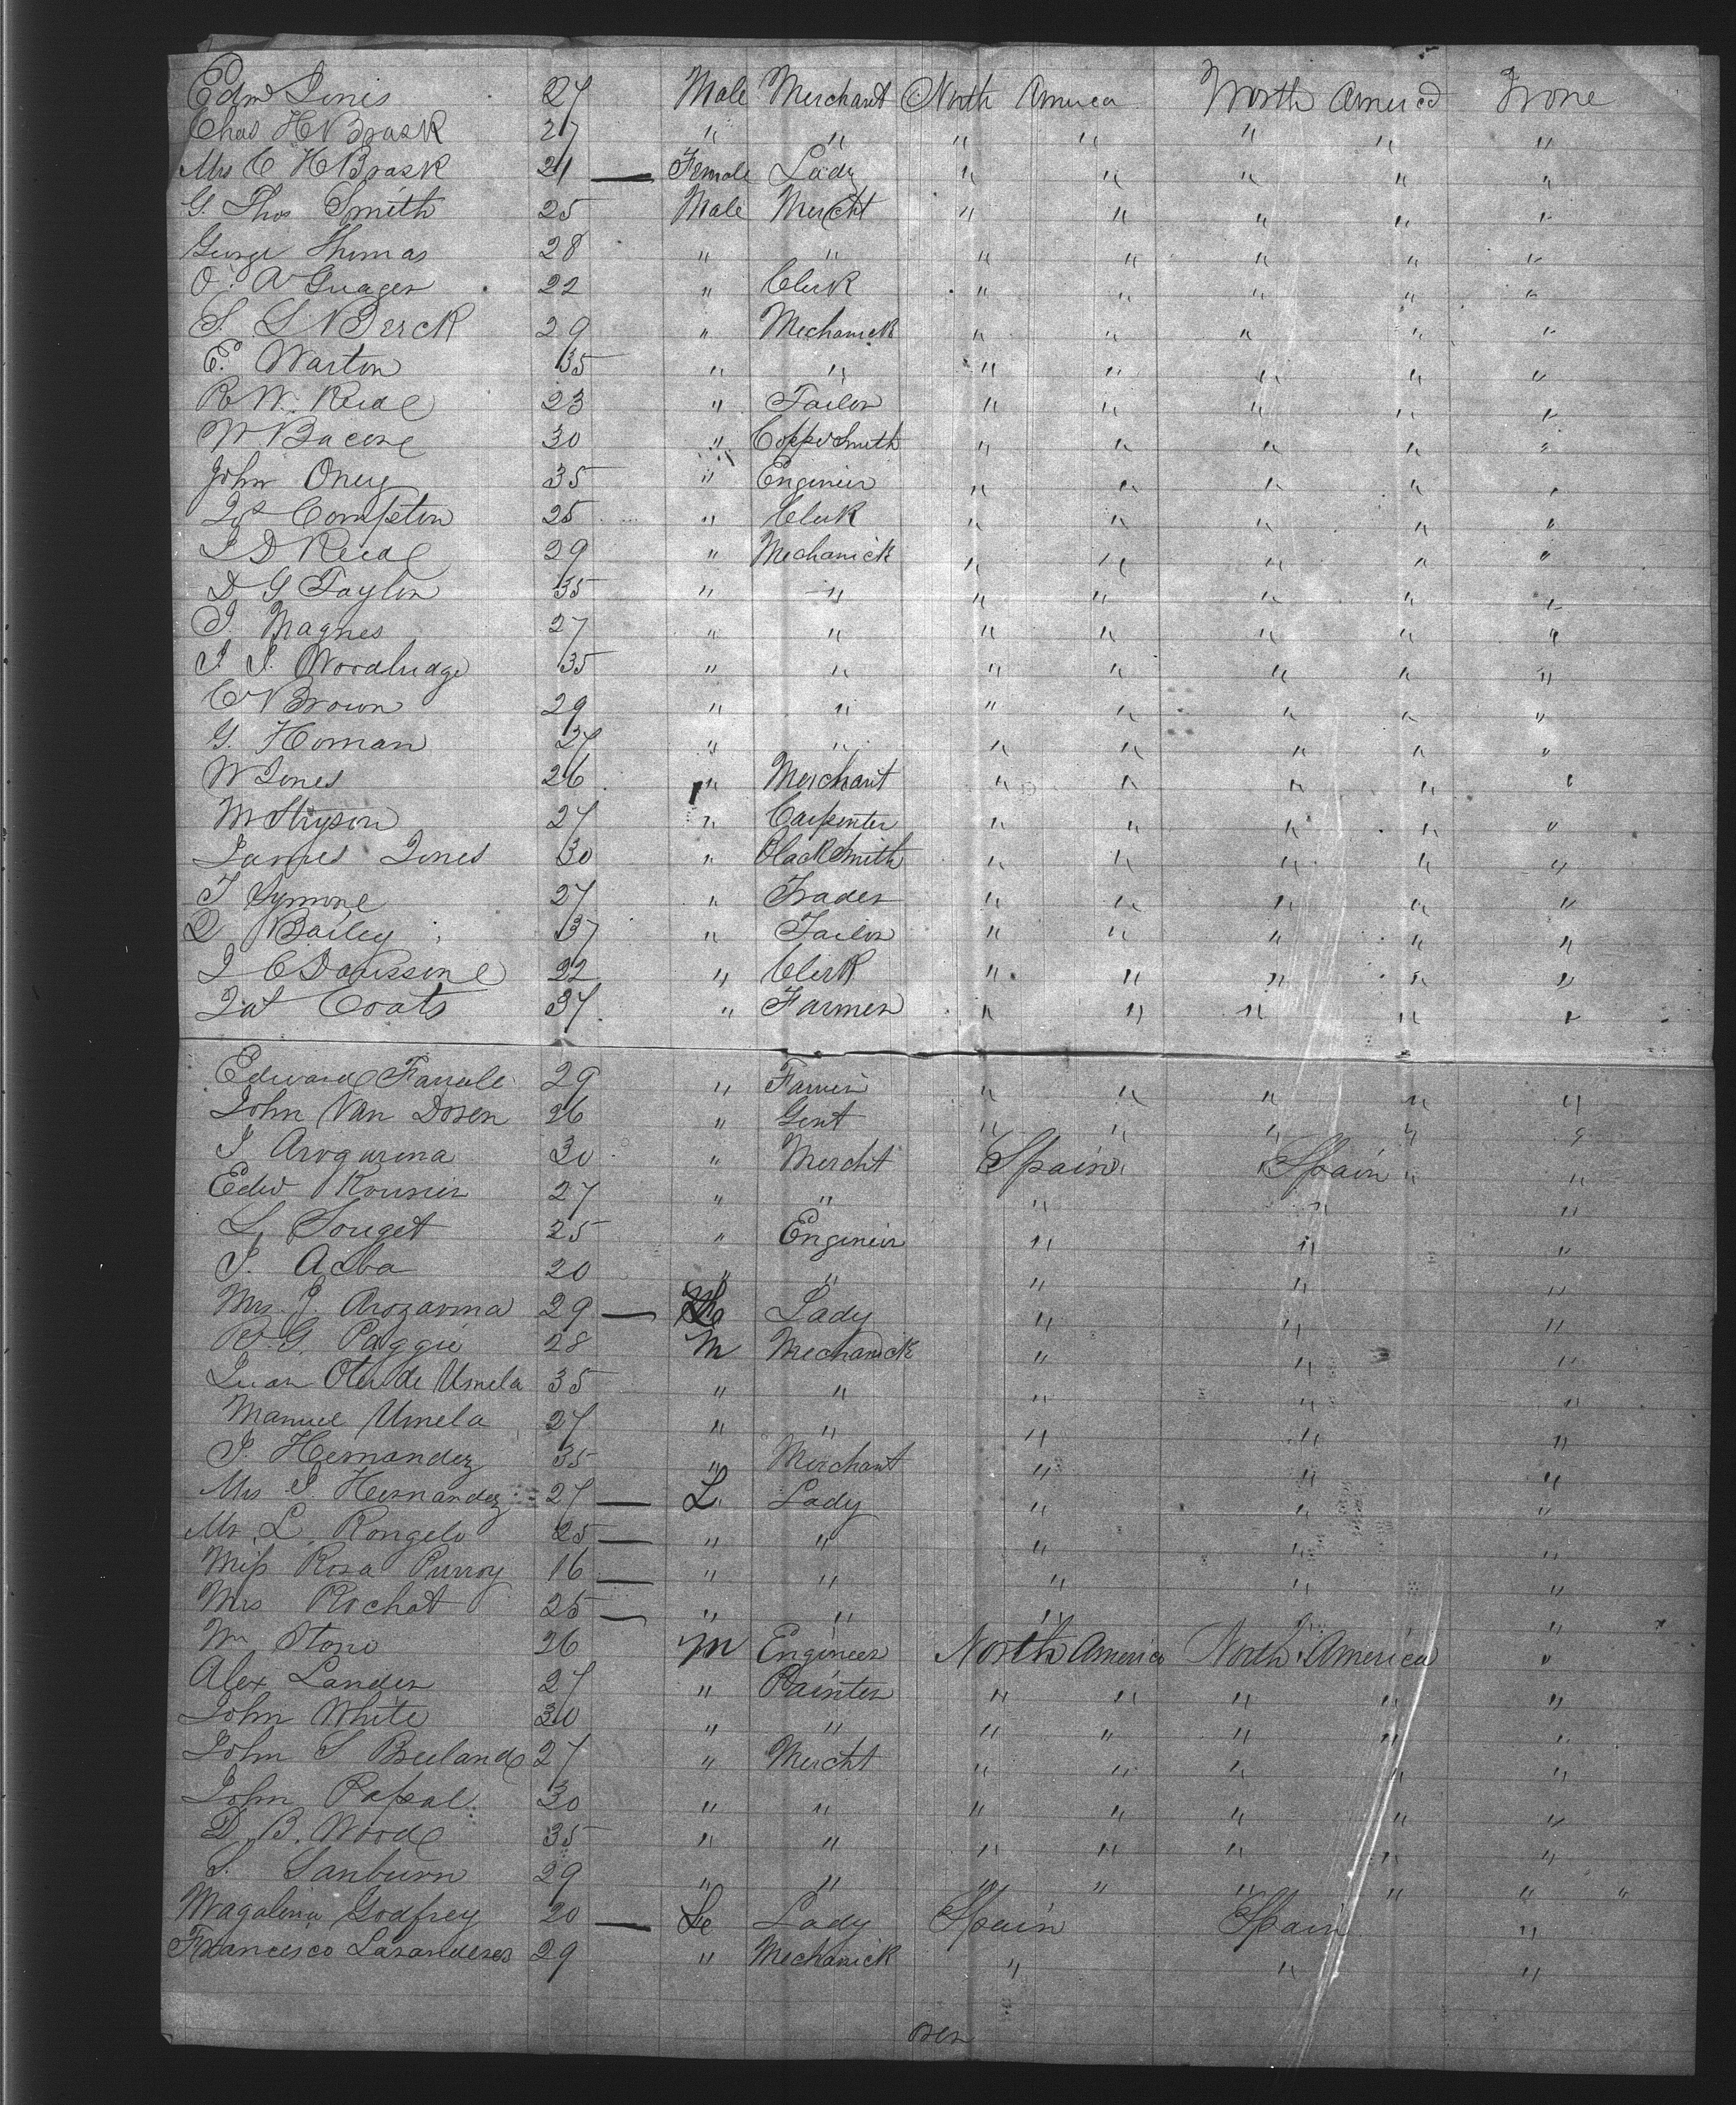 Edmd Jones 27 Male Merchant North America North America None
Chas H Brask 27 " " " " " " "
Mrs C H Brask 21 — Female Lady " " " " "
G. Thos Smith 25 Male Mercht " " " " "
George Thomas 28 " " " " " " "
O. A Guager 22 " Clerk " " " " "
S. L Berck 29 " Mechanick " " " " "
E. Warton 35 " " " " " " "
R W. Reid 23 " Tailor " " " " "
W Bacon 30 " CopperSmith " " " " "
John Oney 35 " Engineer " " " " "
Compton 25 " Clerk " " " " "
J D Reid 29 " Mechanick " " " " "
D G Taylor 35 " " " " " " "
J. Magnes 27 " " " " " " "
J. J. Woodbridge 35 " " " " " " "
C Brown 29 " " " " " " "
G. Homan 27 " " " " " " "
W Jones 26 " Merchant " " " " "
M Stryson 27 " Carpenter " " " " "
James Jones 30 " BlackSmith " " " " "
T Symone 27 " Trader " " " " "
D Bailey 37 " Tailor " " " " "
J C Davisson 22 " Clerk " " " " "
Coats 37 " Farmer " " " " "
Edward 29 " Farmer " " " " "
John Van Dosen 26 " Gent " " " " "
J Arogarena 30 " Mercht Spain Spain " "
Edwd 27 " " " " "
L. Souget 25 " Engineer " " "
J. Acba 20 " " " " "
Mrs. J. Arozarma 29 — Lady " " "
R. G. Paggie 28 M Mechanick " " "
Juan Otu de Umela 35 " " " " "
Manuel Umela 27 " " " " "
J. Hernandez 35 " Merchant " " "
Mrs J. Hernandez 27 — L. Lady " " "
Mr. L. Rongelo 25 — " " " " "
Miss Rosa Purroy 16 — " " " " "
Mrs Rochat 25 — " " " "
Wm Stone 26 M Engineer North America North America "
Alex Lander 27 " Painter " " " " "
John White 30 " " " " " " "
John S Breland 27 " Mercht " " " " "
John Papal 30 " " " " " " "
D. B. Wood 35 " " " " " " "
S. Sanburn 29 " " " " " " " "
Magalina Godfrey 20 — Fe Lady Spain Spain "
Francesco Lasanderes 29 " Mechanick " " "